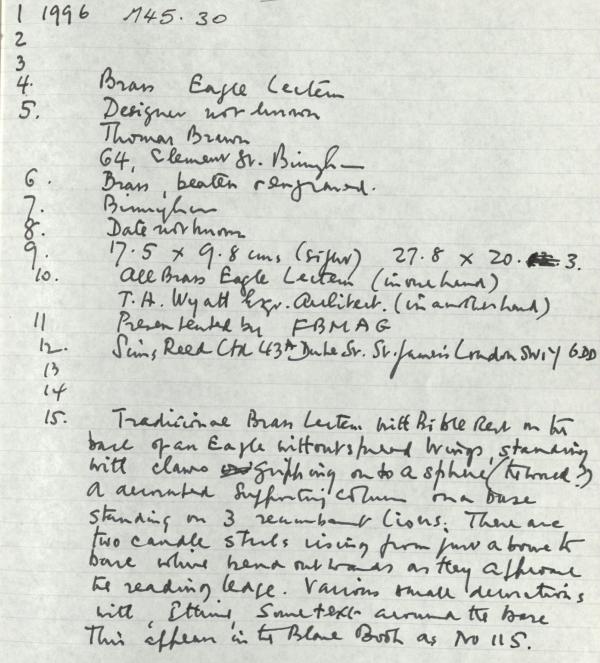 1 1996 M45.30
2
3
4. Brass Eagle Lectern
5. Designer not known
Thomas Brawn
64, Clement St. Birmgham
6. Brass, beaten & engraved.
7. Birmingham
8. Date not known
9. 17.5 x 9.8 cms (sight) 27.8 x 20. 3.
10. All Brass Eagle Lectern (in one hand)
T.H. Wyatt Esqr. Architect. (in another hand)
11 Presented by FBMAG
12. Sims Reed Ltd 43A Duke St. St. James's London SW1Y 6DD
13
14
15. Traditional Brass Lectern with Bible Rest on the
back of an Eagle with outspread wings, standing
with claws gripping on to a sphere (the world?)
A decorated supporting column on a base
standing on 3 recumbant lions. There are
two candle sticks rising from just above the
base which bend outwards as they approach
the reading ledge. Various small decorations
with, Some text around the base
This appears in the Blame Book as No 115.